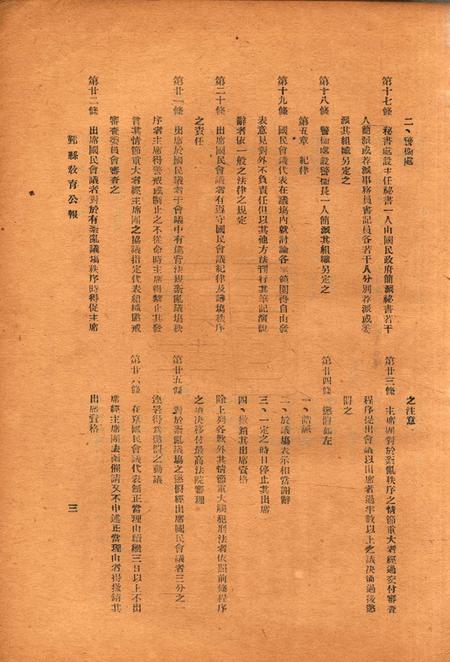 二、警衛處
第十七條　秘書處設主任秘書一人由國民政府簡派秘書若干
人簡派或荐派事務員書記員各若干人分別荐派或委
派其組織另定之
第十八條　警衛處設警衛長一人簡派其組織另定之
第五章　紀律
第十九條　國民會議代表在議場內就討論各案範圍得自由發
表意見對外不負責任但以其他方法刊行其筆記演說
辭者依一般之法律之規定
第二十條　出席國民會議者有遵守國民會議紀律及議場秩序
之責任
第廿一條　出席於國民議者于會議中有違背法規紊亂議場秩
序者主席得警戒或制止之不從命時主席得禁止其發
言其情節重大者經主席團之協議指定代表組織懲戒
審查委員會審查之
第廿二條　出席國民會議者對於有紊亂議場秩序時得促主席
鄞縣敎育公報
之注意
第廿三條　主席團對於紊亂秩序之情節重大者經過交付審查
程序提出會議以出席者過半數以上之議決通過後懲
罰之
第廿四條　懲罰如左
一、誥誡
二、於議場表示相當謝辭
三、一定之時日停止其出席
四、撤銷其出席資格
除上列各款外其情節重大觸犯刑法者依照前條程序
之議決移付最高法院審理
第廿五條　對於紊亂議場之懲罰經出席國民會議者三分之
一連署得為懲罰之動議
第廿六條　在京國民會議代表無正當理由續機三日以上不出
席經主席團表面催請又不申述正當理由者得撤銷其
出席資格
三